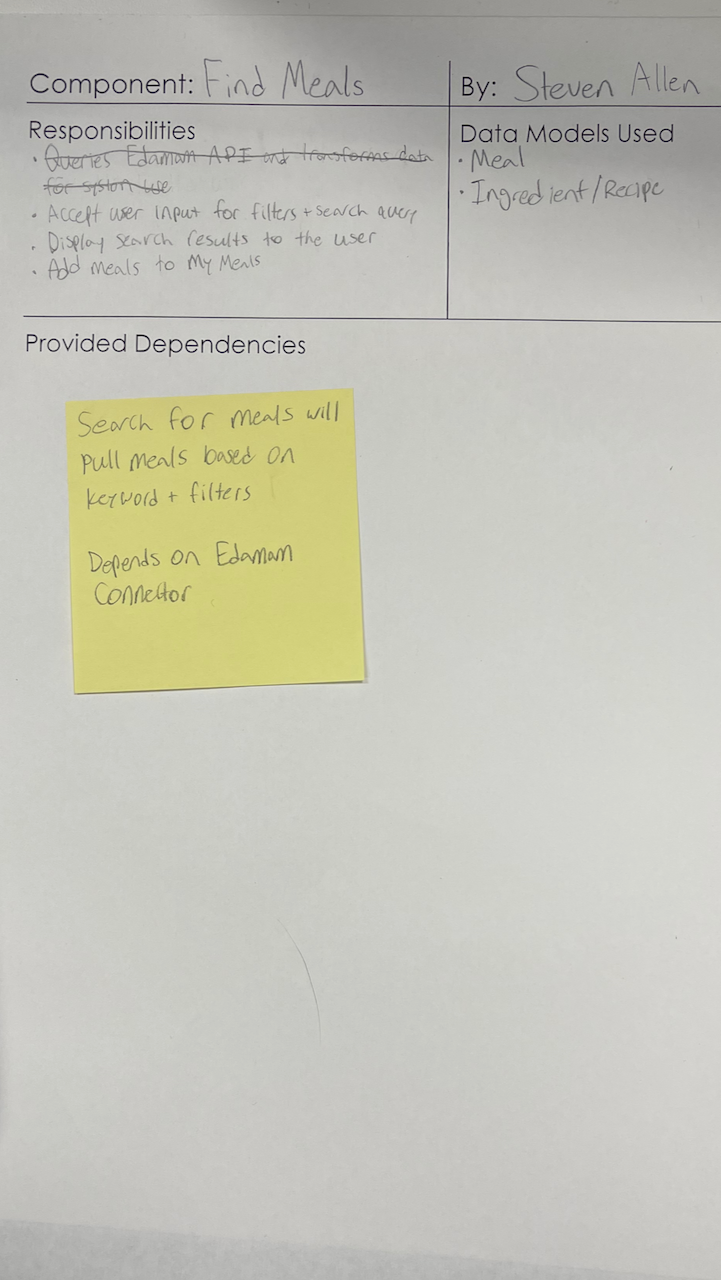 Component: Find Meals
By: Steven Allen
Responsibilities
• Queries Edamam API and transforms data
for system use
• Accept user input for filters + search query
• Display search results to the user
• Add meals to My Meals
Data Models Used
• Meal
• Ingredient/Recipe
Provided Dependencies
Search for meals will
pull meals based on
keyword + filters
Depends on Edamam
Connector